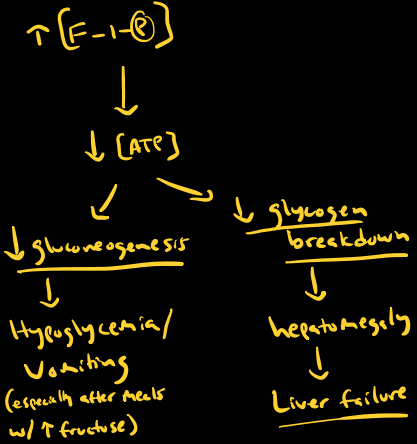 ↑ [F-1-Ⓟ]
↓ [ATP]
↓ gluconeogenesis
Hypoglycemia/
Vomiting
(especially after meals
w/ ↑ fructose)
↓ glycogen
breakdown
hepatomegaly
Liver failure